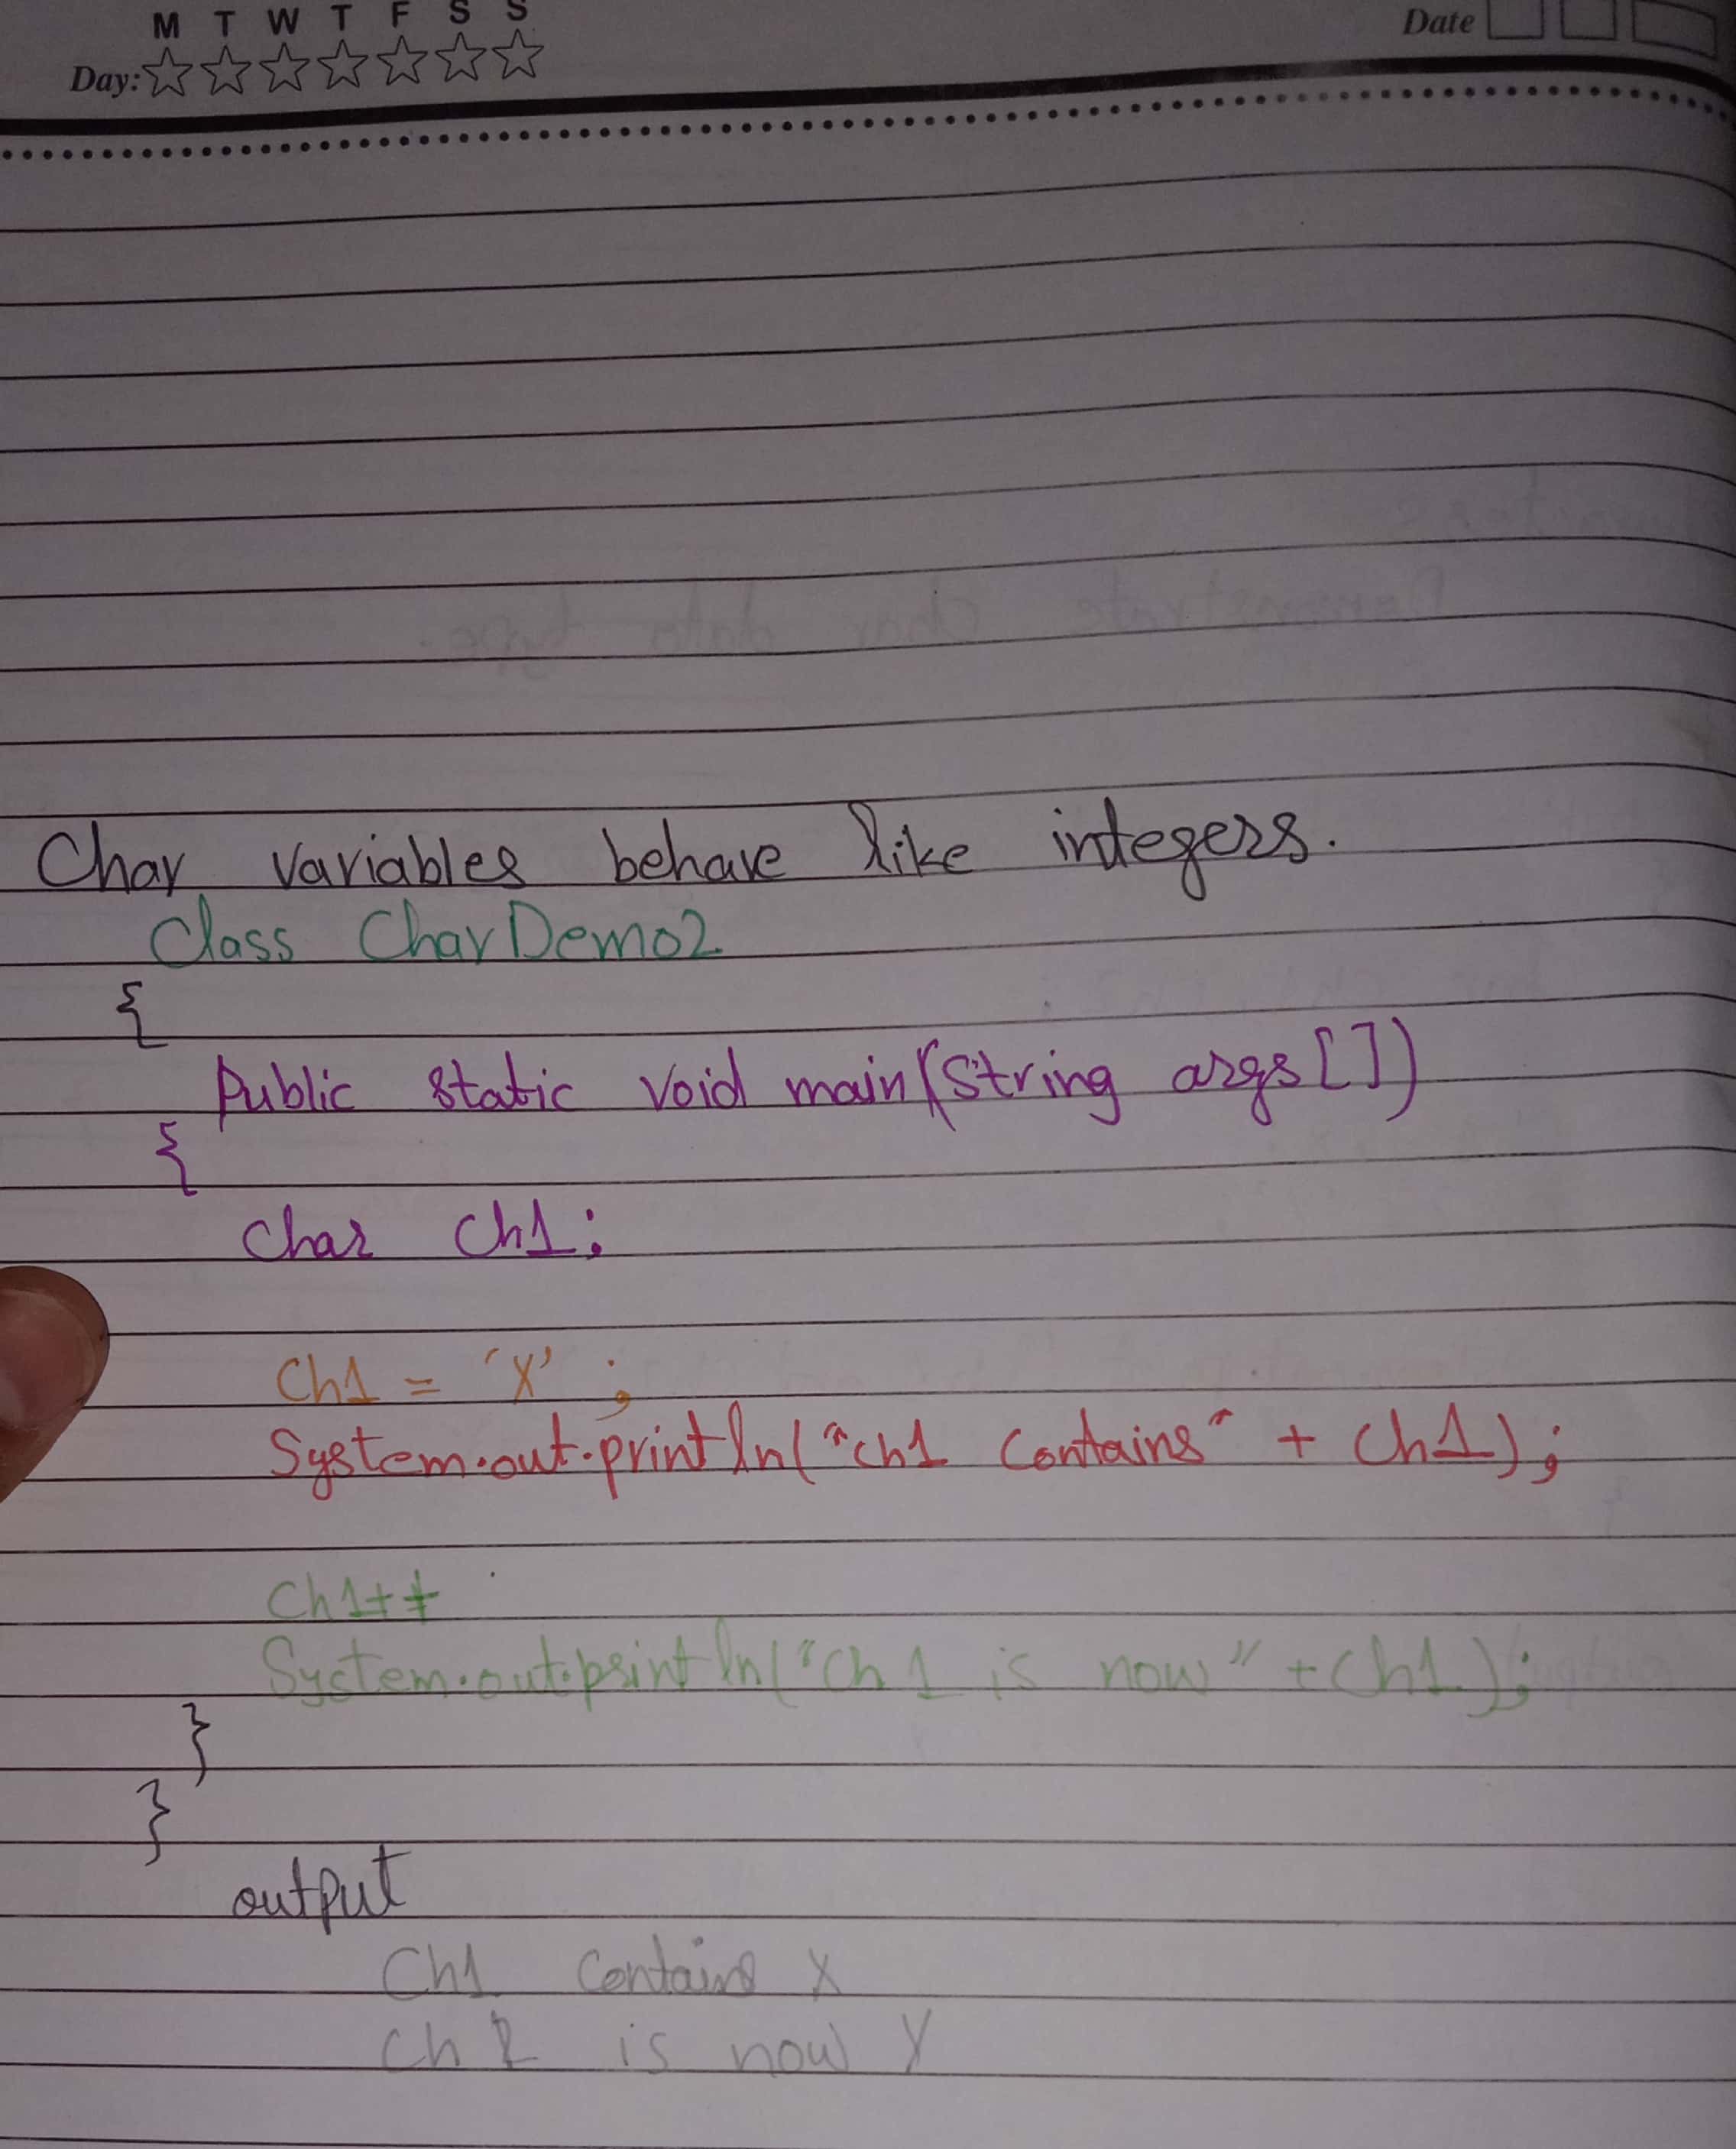 M T W T F S S
Day:
Date
Char variables behave like integers.
Class CharDemo2
{
Public static void main(String args[])
{
Char Ch1;
Ch1 = 'X' ;
System.out.println("ch1 Contains" + Ch1);
Ch1++
System.out.println("Ch 1 is now" + Ch1);
}
}
output
Ch1 Contains X
Ch is now Y